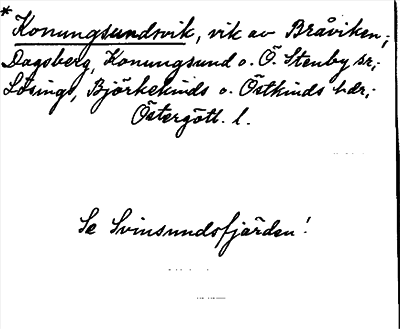 * Konungsundsvik, vik av Bråviken,
Dagsberg, Konungsund o. Ö. Stenby sr,
Lösings, Björkekinds o. Östkinds hdr,
Östergötl. l.
Se Svinsundsfjärden!